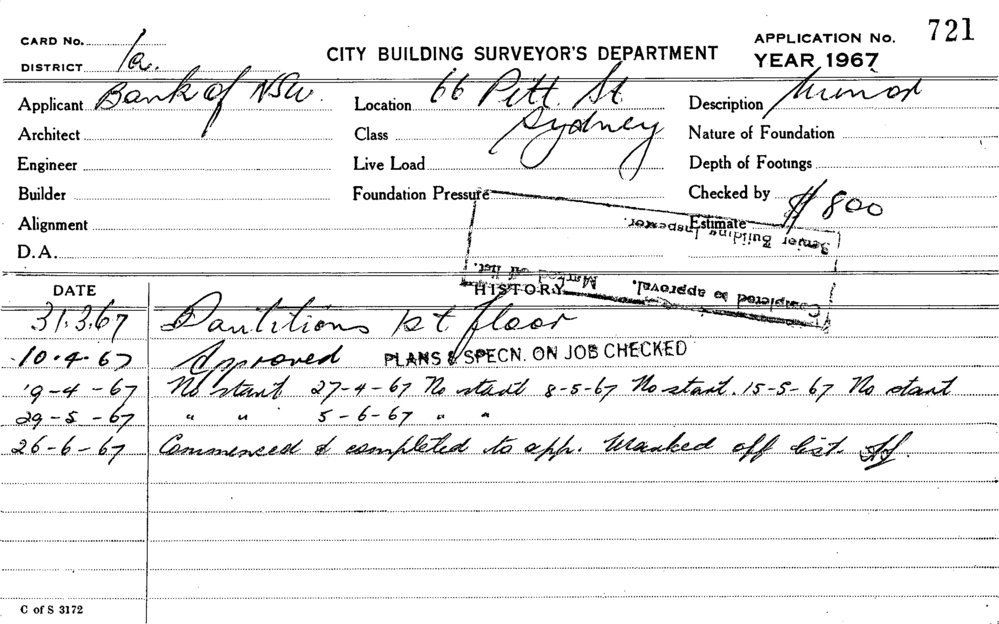 CARD No. 1a.
DISTRICT
CITY BUILDING SURVEYOR'S DEPARTMENT
APPLICATION No. 721
YEAR 1967
Applicant Bank of NSW. Location 66 Pitt. St. Sydney Description Minor
Architect Class Nature of Foundation
Engineer Live Load Depth of Footings
Builder Foundation Pressure Checked by
Alignment Estimate $800
D.A.
Completed to approval. Marked off list.
Senior Building Inspector.
DATE HISTORY
31.3.67 Partitions 1st floor
10.4.67 Approved PLANS & SPECN. ON JOB CHECKED
19-4-67 No start 27-4-67 No start 8-5-67 No start. 15-5-67 No start
29-5-67 " " 5-6-67 " "
26-6-67 Commenced & completed to app. Marked off list.
C of S 3172